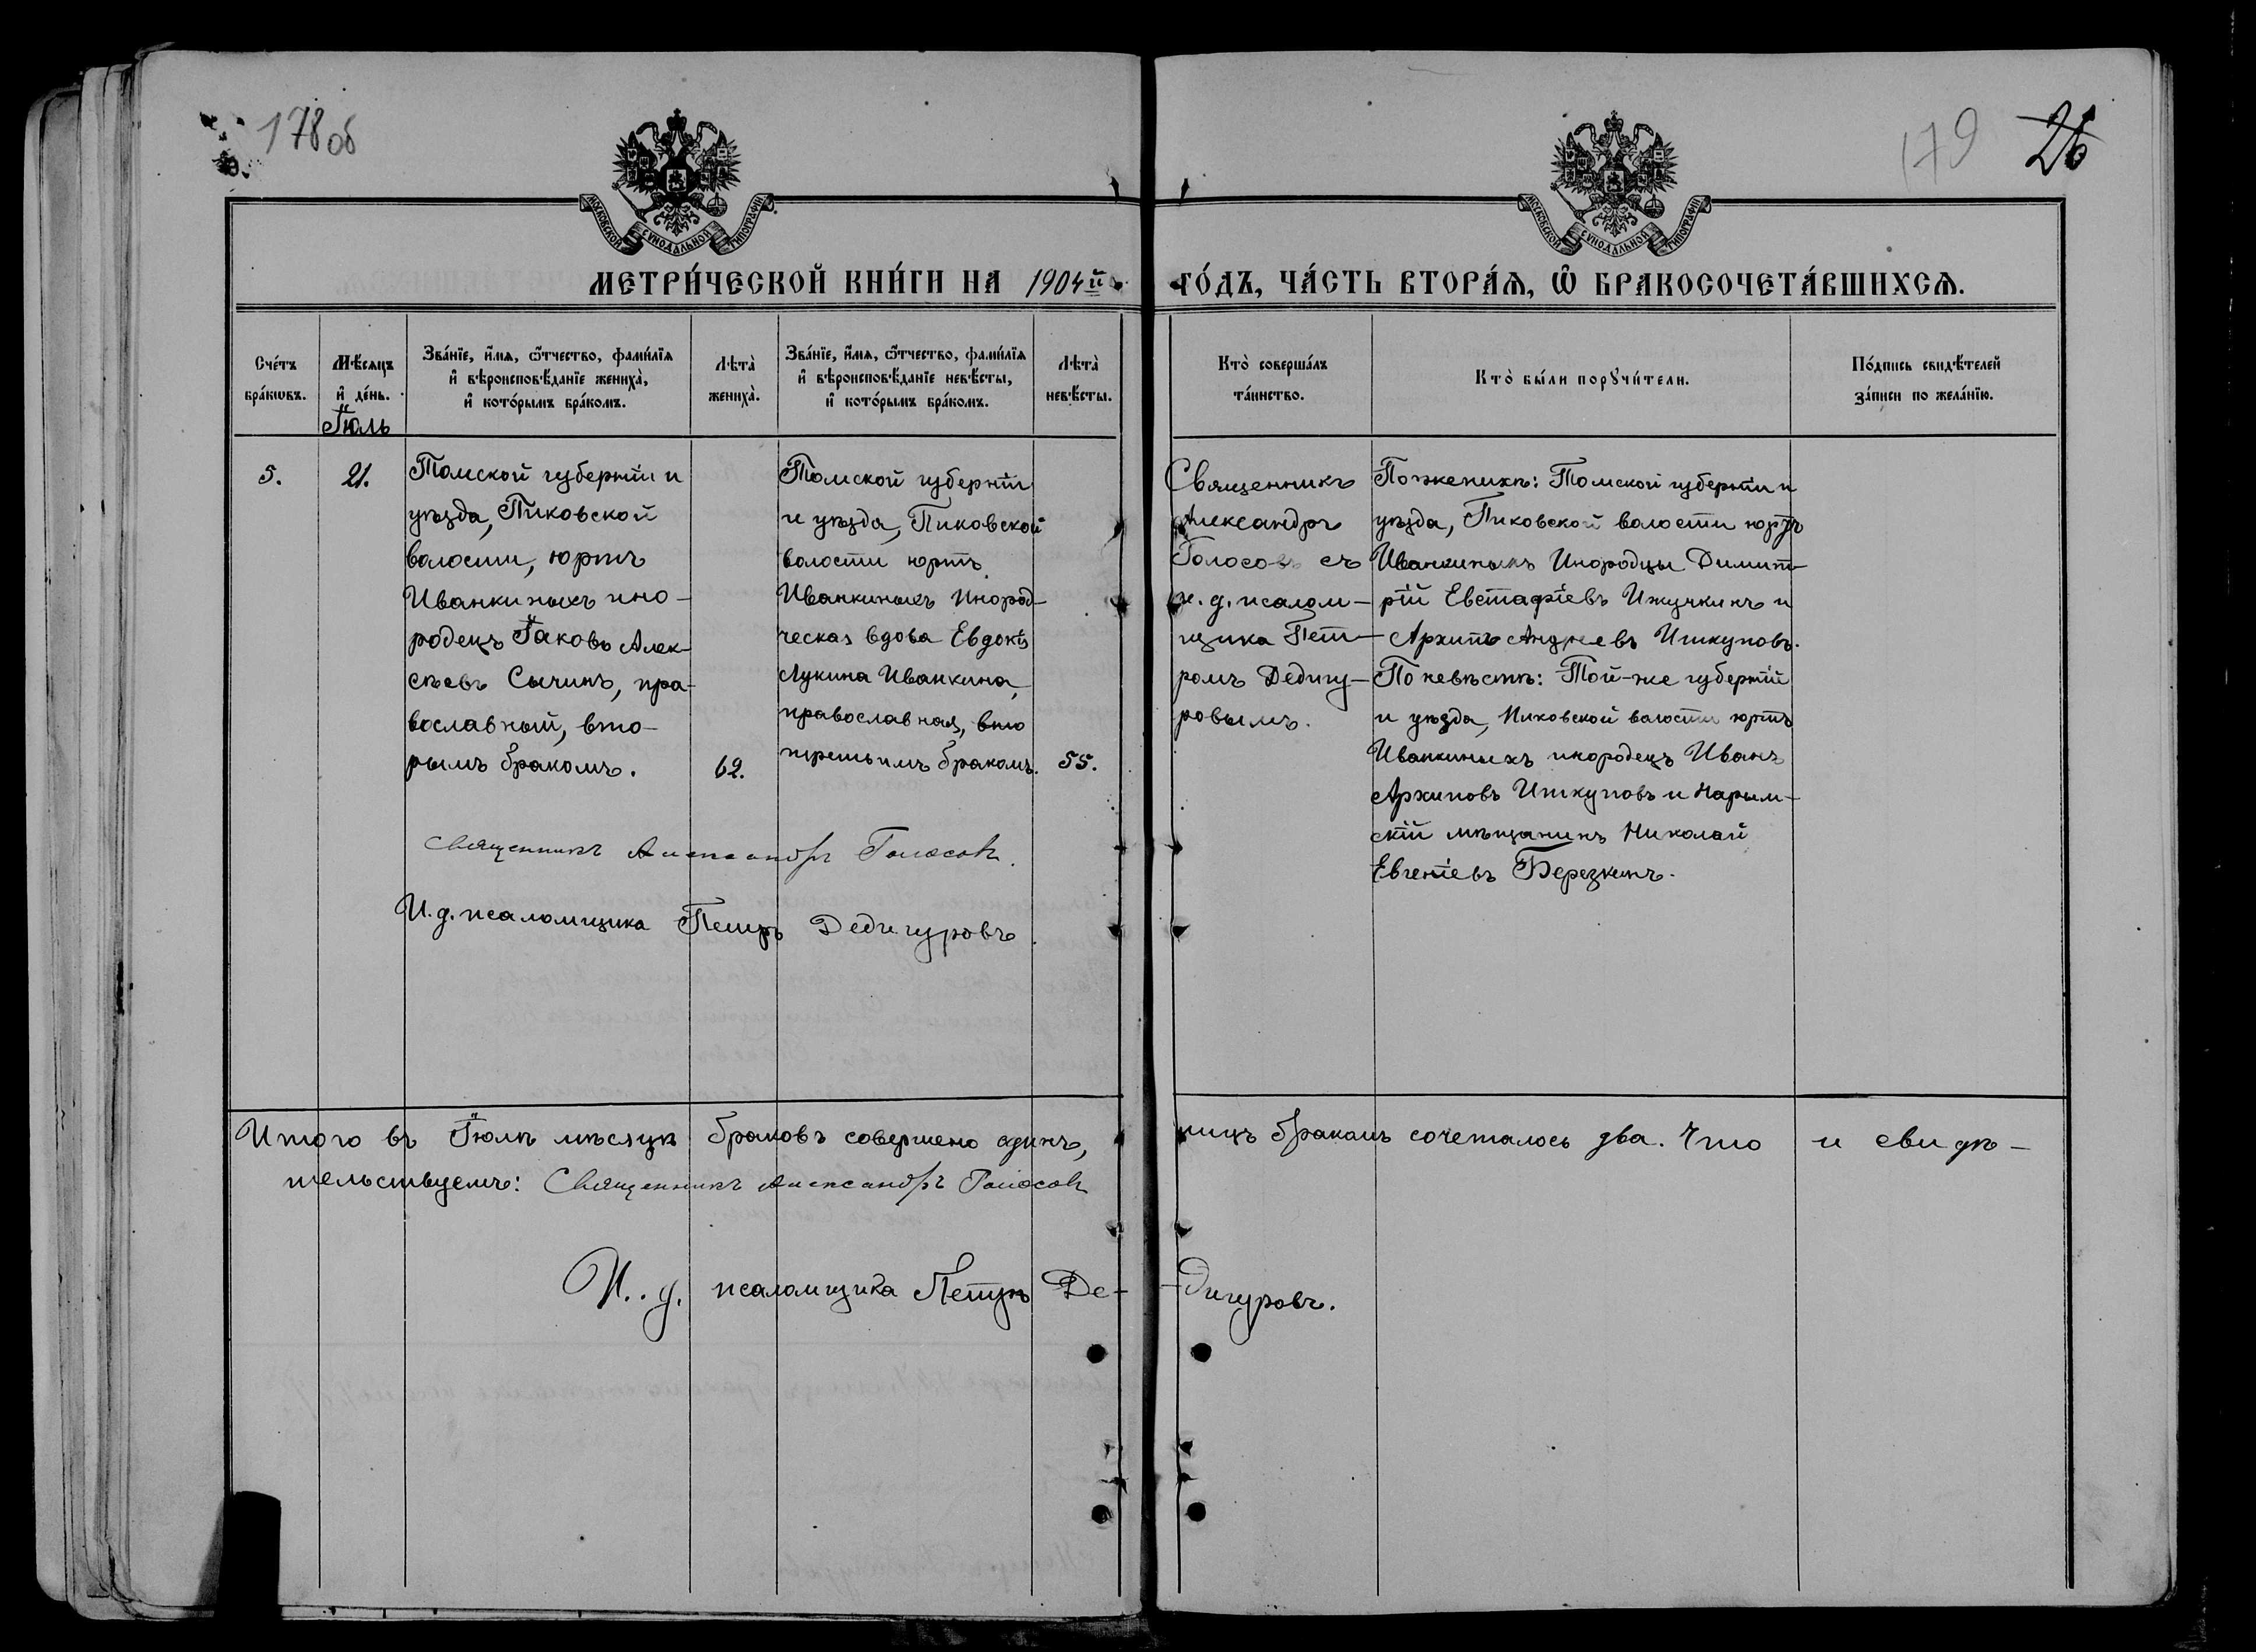 178 об
179 26
МОСКОВСКОЙ СѴНОДАЛЬНОЙ ТИПОГРАФІИ
МОСКОВСКОЙ СѴНОДАЛЬНОЙ ТИПОГРАФІИ
МЕТРИ́ЧЕСКОЙ КНИ́ГИ НА 1904 й ГО́ДЪ, ЧА́СТЬ ВТОРА́Ѧ, Ѽ БРАКОСОЧЕТА́ВШИХСѦ.
Сче́тъ
бра́кѡвъ.
Мѣ́сяцъ
и҆ де́нь.
Іюль
Зва́нїе, и҆́мѧ, ѻ҆́тчество, фами́лїѧ
и҆ вѣроисповѣ́данїе жениха̀,
и҆ кото́рымъ бра́комъ.
Лѣта̀
жениха̀.
Зва́нїе, и҆́мѧ, ѻ҆́тчество, фами́лїѧ
и҆ вѣроисповѣ́данїе невѣ́сты,
и҆ кото́рымъ бра́комъ.
Лѣта̀
невѣ́сты.
Кто̀ соверша́лъ
та́инство.
Кто̀ бы́ли порꙋчи́тели.
По́дпись свидѣ́телей
за́писи по жела́нїю.
5.
21.
Томской губерніи и
уѣзда, Пиковской
волости, юртъ
Иванкиныхъ ино-
родецъ Іаковъ Алек-
сѣевъ Сычинъ, пра-
вославный, вто-
рымъ бракомъ.
62.
Томской губерніи
и уѣзда, Пиковской
волости юртъ
Иванкиныхъ Инород-
ческая вдова Евдокія
Лукина Иванкина,
православная, вто
третьимъ бракомъ.
55.
Священникъ
Александръ
Голосовъ съ
и. д. псалом-
щика Пет-
ромъ Дедигу-
ровымъ.
По женихѣ: Томской губерніи и
уѣзда, Пиковской волости юртъ
Иванкиныхъ Инородцы Димит-
рій Евстафіевъ Ижучкинъ и
Архипъ Андреевъ Иткуповъ.
По невѣстѣ: Той-же губерніи
и уѣзда, Пиковской волости юртъ
Иванкиныхъ инородецъ Иванъ
Архиповъ Иткуповъ и Нарым-
скій мѣщанинъ Николай
Евгеніевъ Березкинъ.
Священникъ Александръ Голосовъ.
И. д. псаломщика Петръ Дедигуровъ.
Итого въ Іюлѣ мѣсяцѣ браковъ совершено одинъ, лицъ бракомъ сочеталось два. Что и свидѣ-
тельствуемъ: Священникъ Александръ Голосовъ
И. д. псаломщика Петръ Де- -дигуровъ.